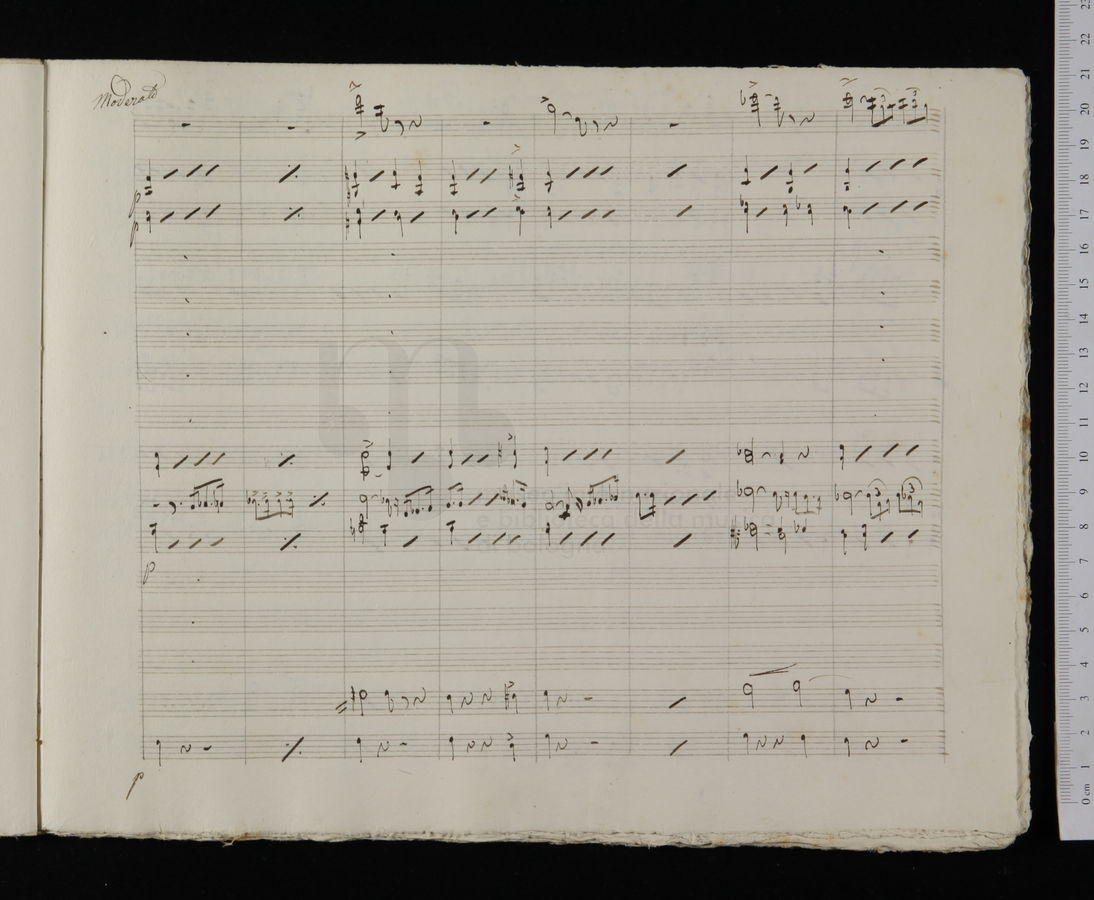 Moderato
p
p
m
e biblioteca della musica
p
p
23
22
21
20
19
18
17
16
15
14
13
12
11
10
9
8
7
6
5
4
3
2
1
0 cm